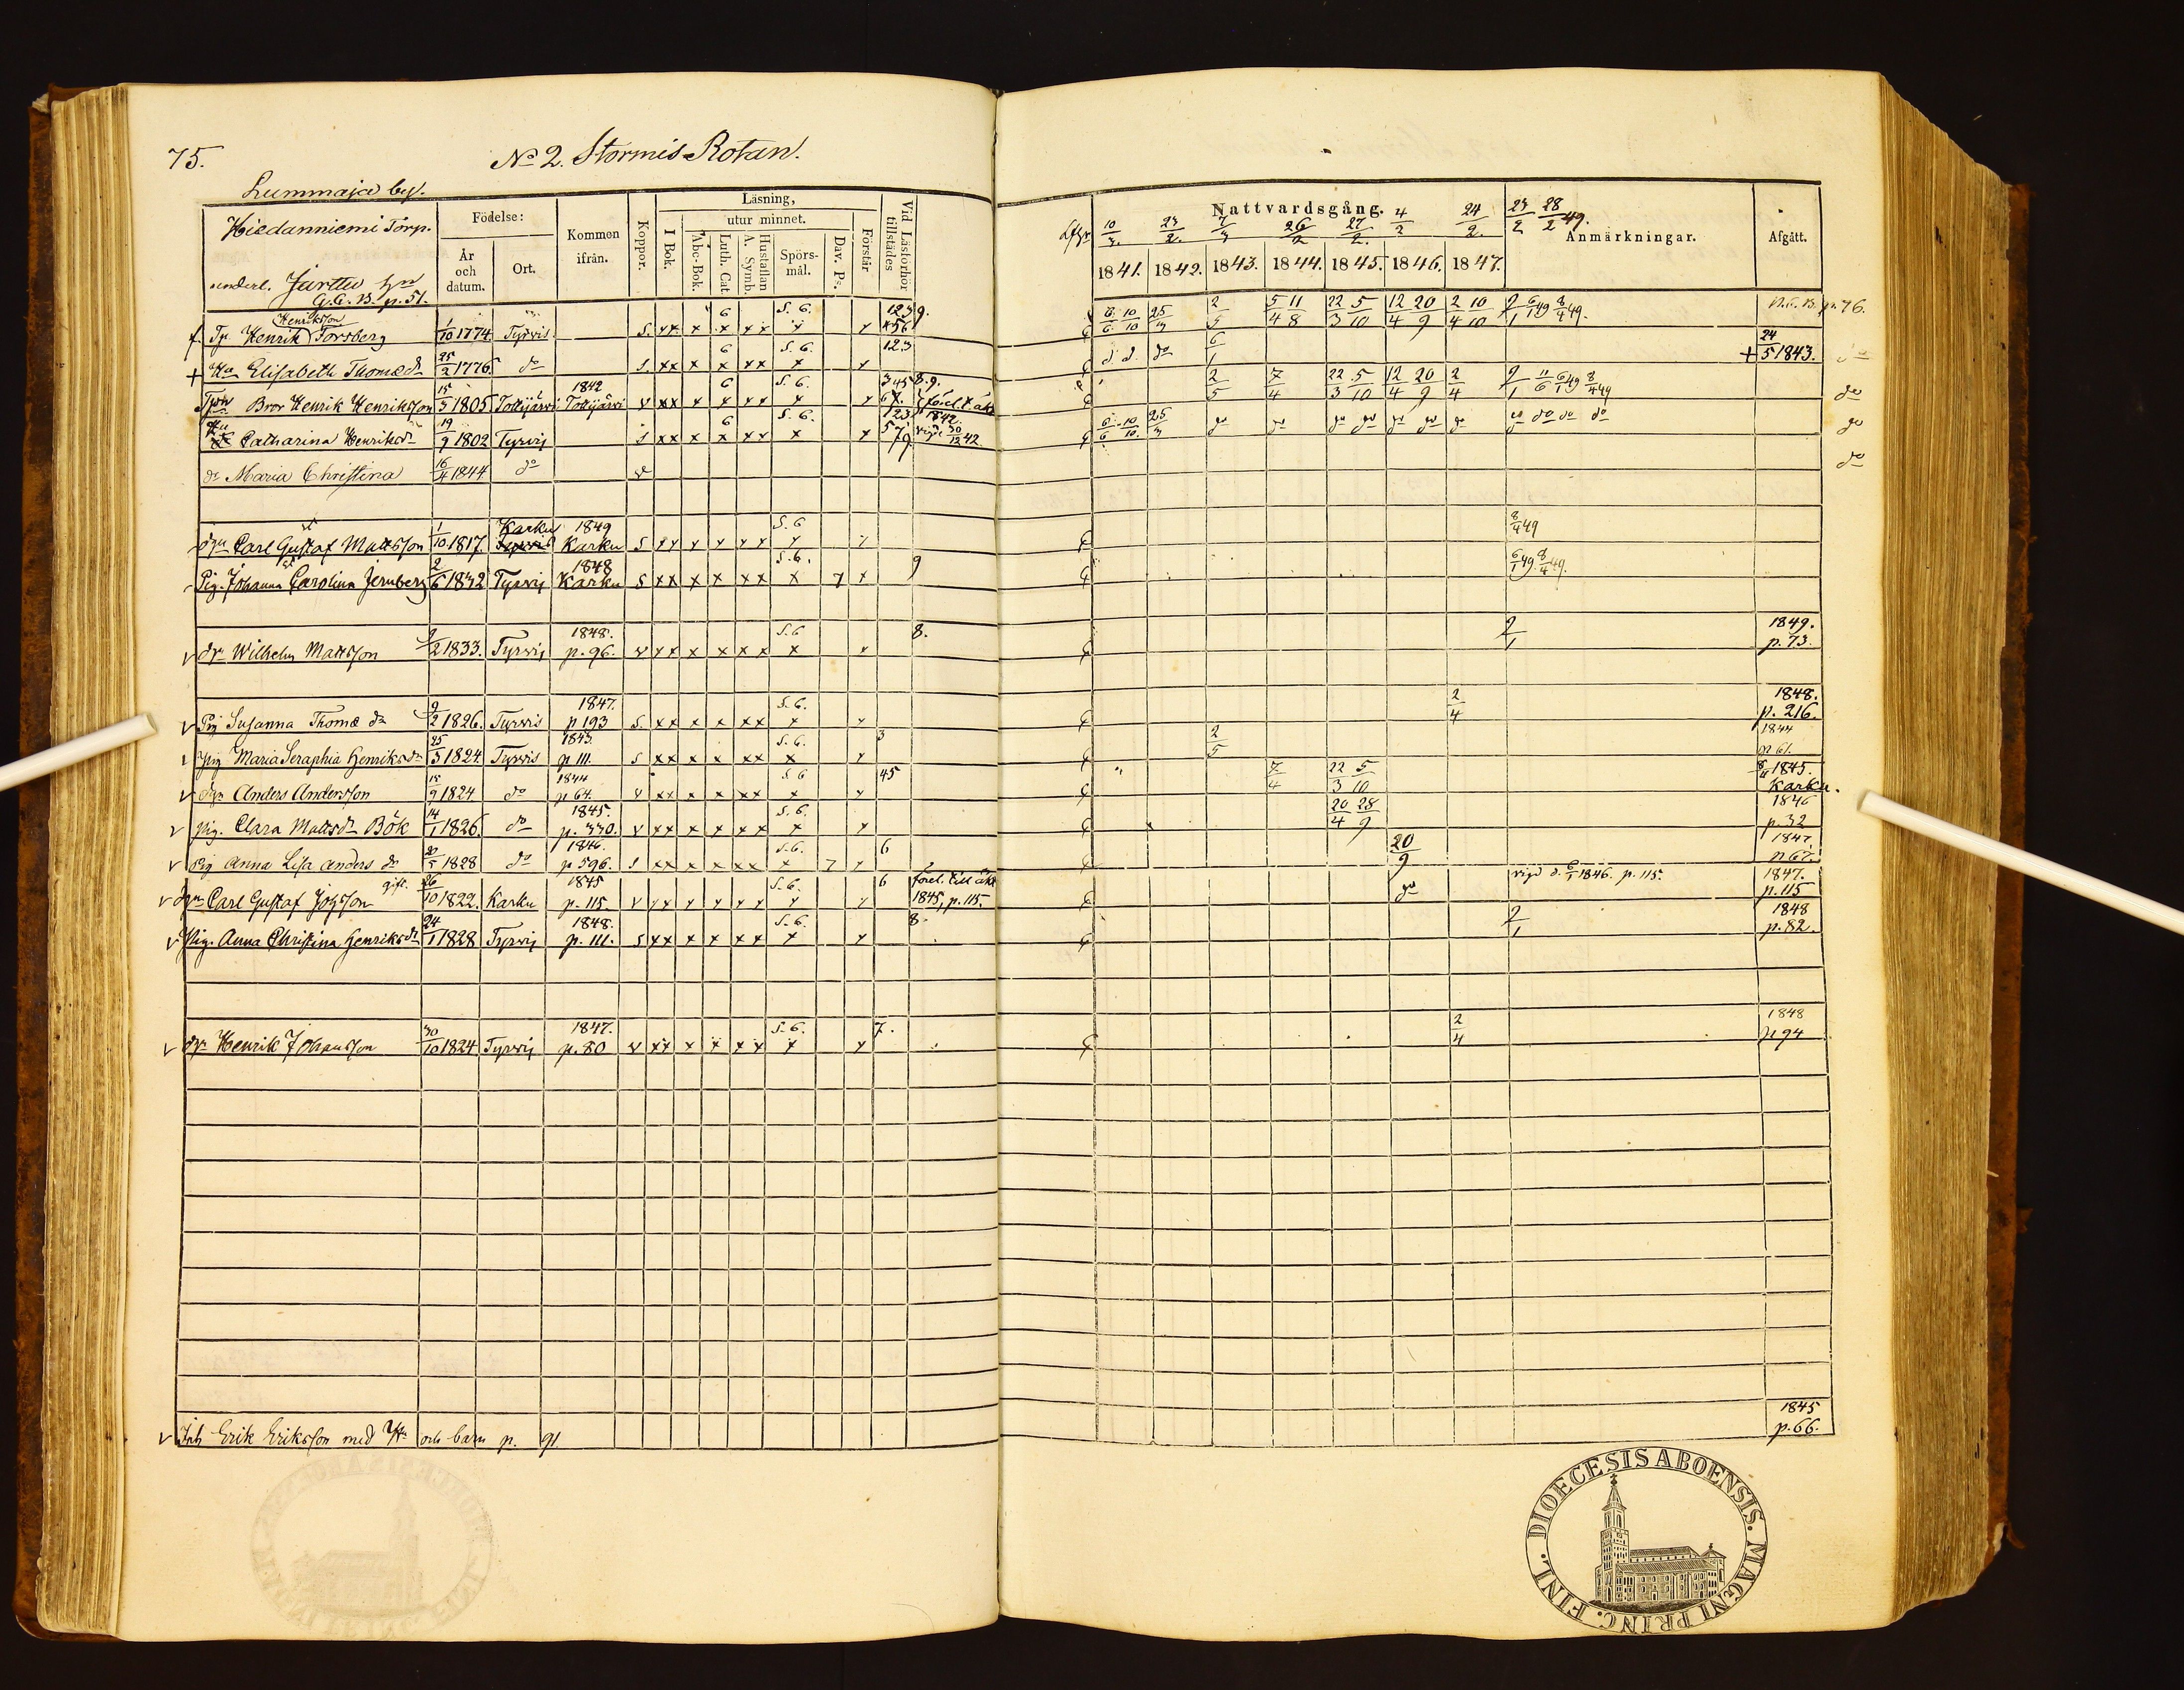 75.
No 2. Stormis Rotan.
Lummaja by.
Hiedanniemi Torp.
underl. Jarttu
G.C.B. p. 51.
Födelse:
År och datum.
Ort.
Kommen ifrån.
Koppor.
Läsning,
I Bok.
utur minnet.
Abc-Bok.
Luth. Cat.
Hustaflan A. Symb.
Spörs-mål.
Dav. Ps.
Förstår
Vid Läsförhör tillstädes
Nattvardsgång.
10/3 23/2. 7/3 26/2 27/2. 4/2 24/2. 23/2 28/2 49.
1841. 1842. 1843. 1844. 1845. 1846. 1847.
Anmärkningar.
Afgått.
Henriksson
Tp. Henrik Forsberg 1/10 1774 Tyrvis S. 6 S. 6. 1239. 56 6/6 10/10 25/3 2/5 5/4 11/8 22/3 5/10 12/4 20/9 2/4 10/10 2/1 6/1 49 8/4 49. N.C.B. p. 76.
+ Hu Elisabeth Thomædr 25/2 1776 do 6 S. 6. 123 do 6/1 + 24/5 1843.
Bror Henrik Henriksson 15/5 1805 Tottijärvi 1842 Tottijärvi v 6 S. 6. 345 8.9. 2/5 7/4 22/3 5/10 12/4 20/9 2/4 2/1 11/6 6/1 49 8/4 49 do
Hu Catharina Henriksdr 19/9 1802 Tyrvis 6 S. 6. 123 579. 1842. vigd 30/12 42. 6/6 10/10. 25/3 do do do do do do do do do do do do
dr Maria Christina 16/4 1844 do v do
Carl Gustaf Mattsson 1/10 1817. Karku 1849 Karku S S. 6 8/4 49
Pig. Johanna Carolina Jernberg 2/6 1832 Tyrvis 1848 Karku S S. 6. 7 9 6/1 49. 8/4 49.
dr Wilhelm Mattsson 9/2 1833. Tyrvis 1848. p. 96. v S. 6 8. 2/1 1849. p. 73.
Pig Susanna Thomæ dr 9/2 1826. Tyrvis 1847. p 193 S. S. 6. 2/4 1848. p. 216.
pig Maria Seraphia Henriksdr 25/5 1824 Tyrvis 1843. p 111. S S. 6. 3 2/5 1844 p 61.
Anders Andersson 15/9 1824 do 1844 p 64. v S 6 45 7/4 22/3 5/10 8/11 1845. Karku.
pig. Clara Mattsdr Bök 14/1 1826. do 1845. p. 330. v S. 6. 20/4 28/9 1846 p. 32
pig Anna Lisa Anders dr 20/5 1828 do 1846. p 596. S. 6. 7 6 20/9 1847. p 67.
Carl Gustaf gift. 26/10 1822. Karku 1845 p. 115 v S. 6. 6 förel. till äkt 1845, p. 115. do vigd d. 6/1 1846. p. 115. 1847. p. 115
Pig. Anna Christina Henriksdr 24/1 1828 Tyrvis 1848. p. 111. S S. 6. 8. 2/1 1848 p. 82.
dr Henrik Johansson 30/10 1824 Tyrvis 1847. p. 80 v S. 6. 7. 2/4 1848 p 94
Inh Erik Eriksson med Hu och barn p. 91 1845 p. 66.
DIOECESIS ABOENSIS. MAGNI PRINC. FINL.